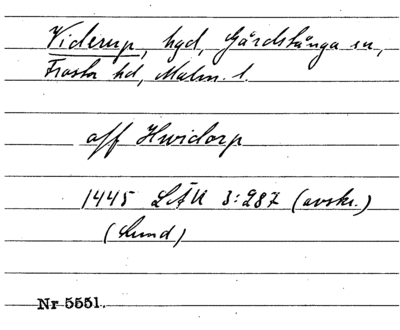 Viderup, hgd, Gårdstånga sn,
Frosta hd, Malm. l.
off Hwidorp
1445 LÄU 3:287 (avskr.)
(Lund)
Nr 5551.